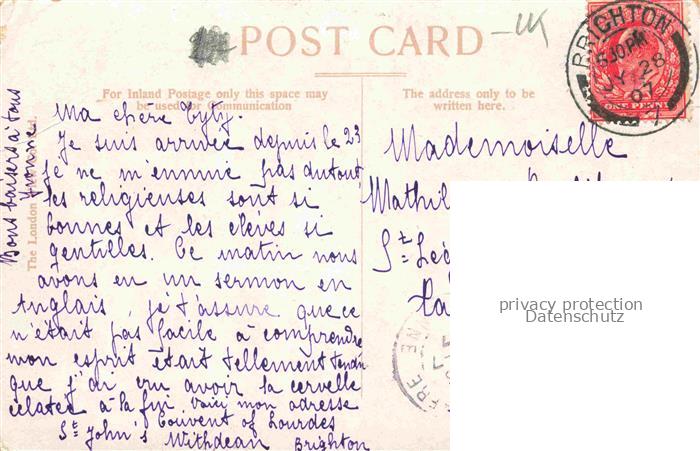 POST CARD
UK
BRIGHTON
5.30PM
JY 28
07
ONE PENNY
For Inland Postage only this space may
be used for Communication
The address only to be
written here.
The London
Ma chère Tyty.
Je suis arrivée depuis le 23
je ne m'ennuie pas du tout
les religieuses sont si
bonnes et les elèves si
gentilles. Ce matin nous
avons eu un sermon en
Anglais, je t'assure que ce
n'était pas facile à comprendre
mon esprit était tellement tendu
que j'ai cru avoir la cervelle
éclatée à la fin Voici mon adresse
Convent of Lourdes
St John's Withdean Brighton
Bons baisers à tous
Yvonne
Mademoiselle
Mathil
St Lé
privacy protection
Datenschutz